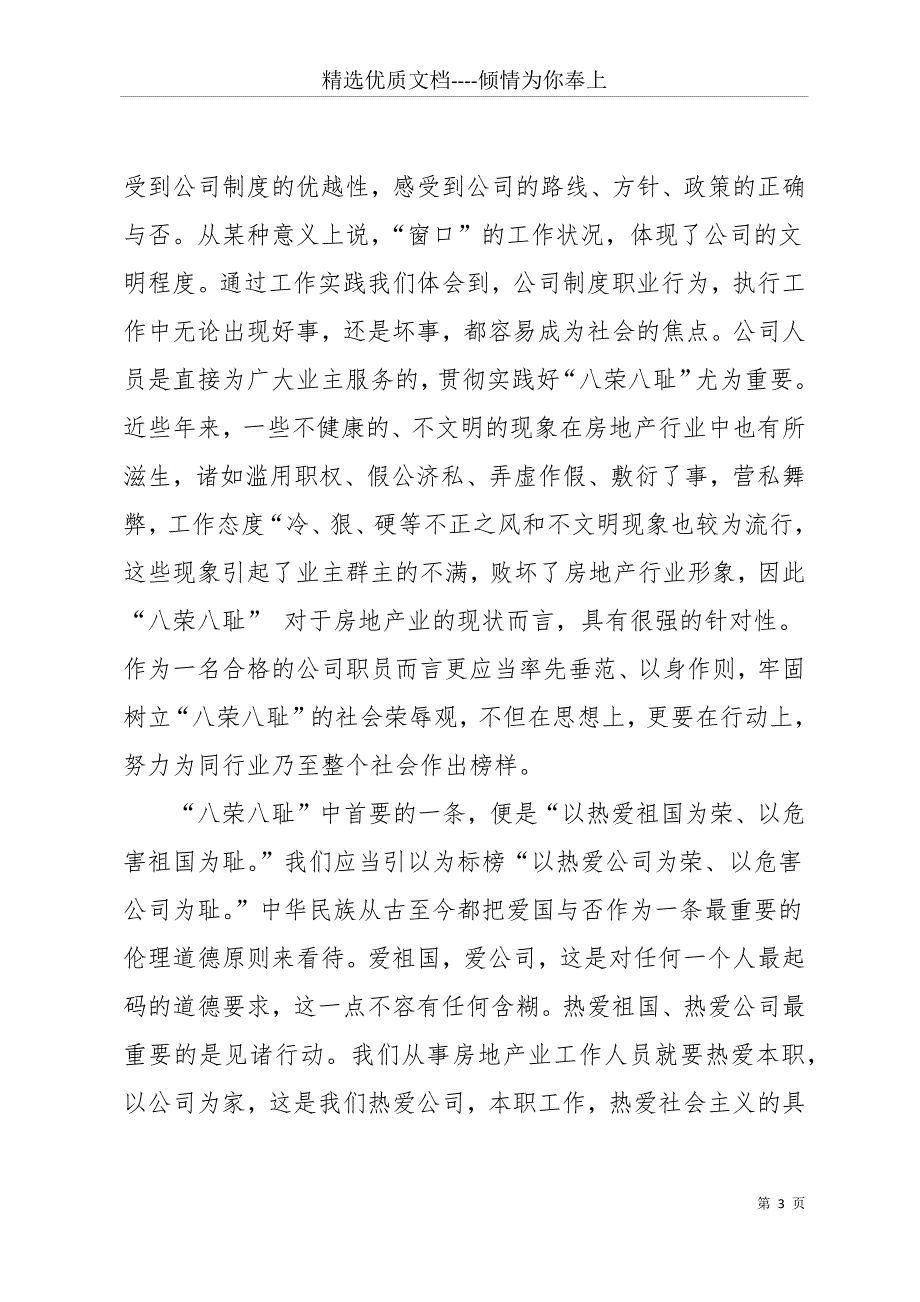 精选优质文档----倾情为你奉上
受到公司制度的优越性，感受到公司的路线、方针、政策的正确
与否。从某种意义上说，“窗口”的工作状况，体现了公司的文
明程度。通过工作实践我们体会到，公司制度职业行为，执行工
作中无论出现好事，还是坏事，都容易成为社会的焦点。公司人
员是直接为广大业主服务的，贯彻实践好“八荣八耻”尤为重要。
近些年来，一些不健康的、不文明的现象在房地产行业中也有所
滋生，诸如滥用职权、假公济私、弄虚作假、敷衍了事，营私舞
弊，工作态度“冷、狠、硬等不正之风和不文明现象也较为流行，
这些现象引起了业主群主的不满，败坏了房地产行业形象，因此
“八荣八耻” 对于房地产业的现状而言，具有很强的针对性。
作为一名合格的公司职员而言更应当率先垂范、以身作则，牢固
树立“八荣八耻”的社会荣辱观，不但在思想上，更要在行动上，
努力为同行业乃至整个社会作出榜样。
“八荣八耻”中首要的一条，便是“以热爱祖国为荣、以危
害祖国为耻。”我们应当引以为标榜“以热爱公司为荣、以危害
公司为耻。”中华民族从古至今都把爱国与否作为一条最重要的
伦理道德原则来看待。爱祖国，爱公司，这是对任何一个人最起
码的道德要求，这一点不容有任何含糊。热爱祖国、热爱公司最
重要的是见诸行动。我们从事房地产业工作人员就要热爱本职，
以公司为家，这是我们热爱公司，本职工作，热爱社会主义的具
第 3 页